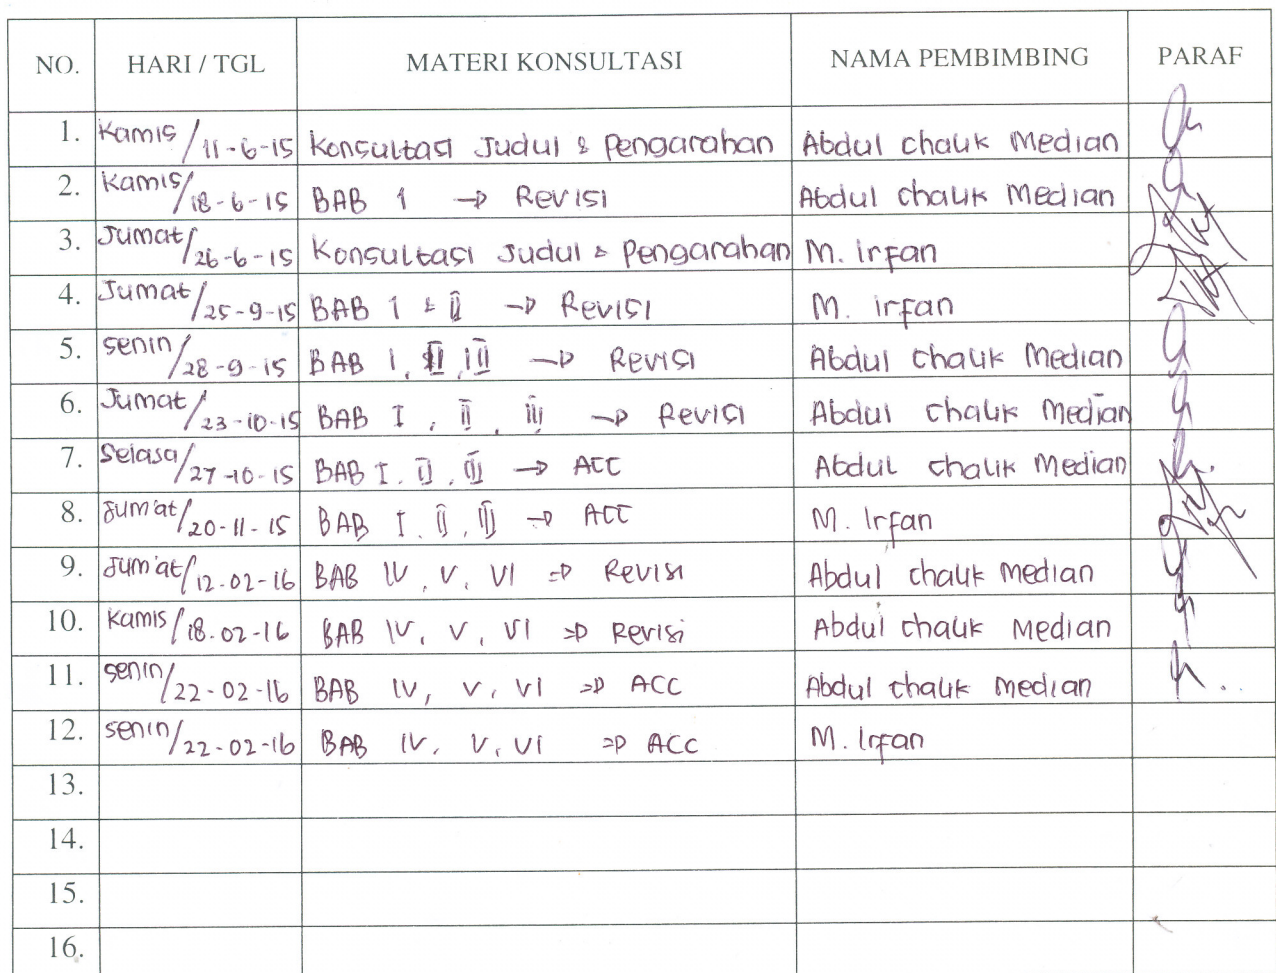 NO. HARI / TGL MATERI KONSULTASI NAMA PEMBIMBING PARAF
1. Kamis / 11-6-15 Konsultasi Judul & Pengarahan Abdul chalik Median
2. Kamis / 18-6-15 BAB 1 → Revisi Abdul chalik Median
3. Jumat / 26-6-15 Konsultasi Judul & Pengarahan M. Irfan
4. Jumat / 25-9-15 BAB I & II → Revisi M. irfan
5. senin / 28-9-15 BAB I, II, III → Revisi Abdul chalik Median
6. Jumat / 23-10-15 BAB I, II, III → Revisi Abdul chalik Median
7. Selasa / 27-10-15 BAB I. II. III → ACC Abdul chalik Median
8. Jum'at / 20-11-15 BAB I. II, III → ACC M. Irfan
9. Jum'at / 12.02-16 BAB IV, V, VI ⇒ Revisi Abdul chalik Median
10. Kamis / 18.02-16 BAB IV, V, VI ⇒ Revisi Abdul chalik Median
11. senin / 22-02-16 BAB IV, V, VI ⇒ ACC Abdul chalik Median
12. senin / 22-02-16 BAB IV, V, VI ⇒ ACC M. Irfan
13.
14.
15.
16.